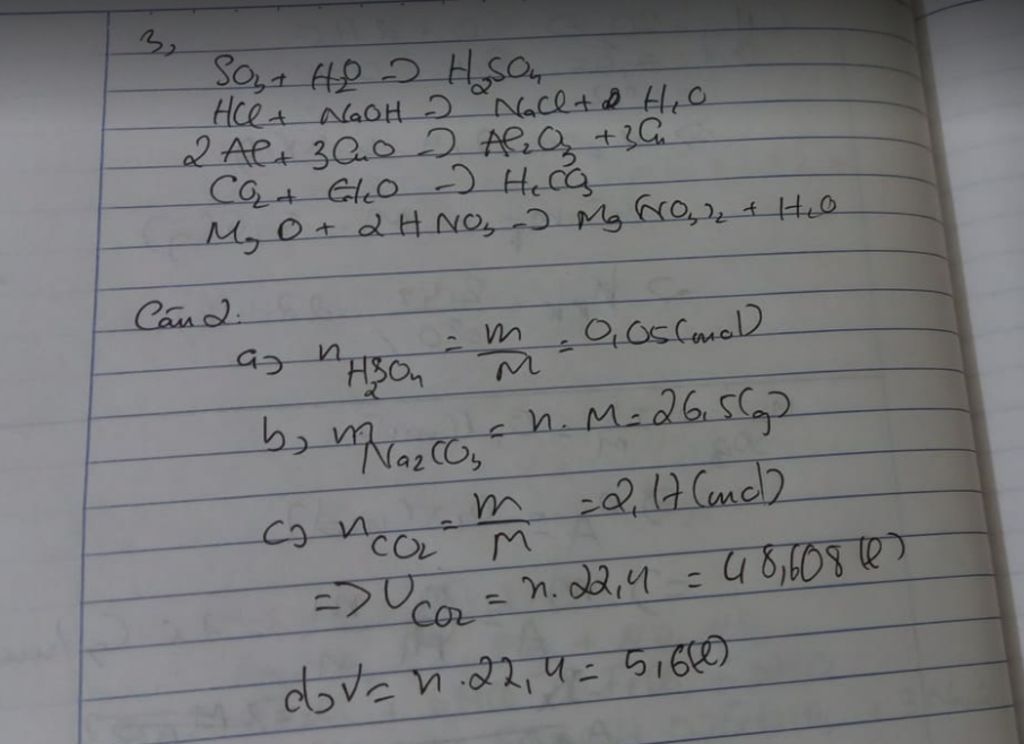 3,
SO3 + H2O => H2SO4
HCl + NaOH => NaCl + H2O
2Al + 3CuO => Al2O3 + 3Cu
CO2 + H2O -> H2CO3
MgO + 2HNO3 -> Mg(NO3)2 + H2O
Câu 2:
a, nH2SO4 = m/M = 0,05(mol)
b, mNa2CO3 = n.M = 26,5(g)
c, nCO2 = m/M = 2,17(mol)
=> VCO2 = n.22,4 = 48,608(l)
d, V = n.22,4 = 5,6(l)